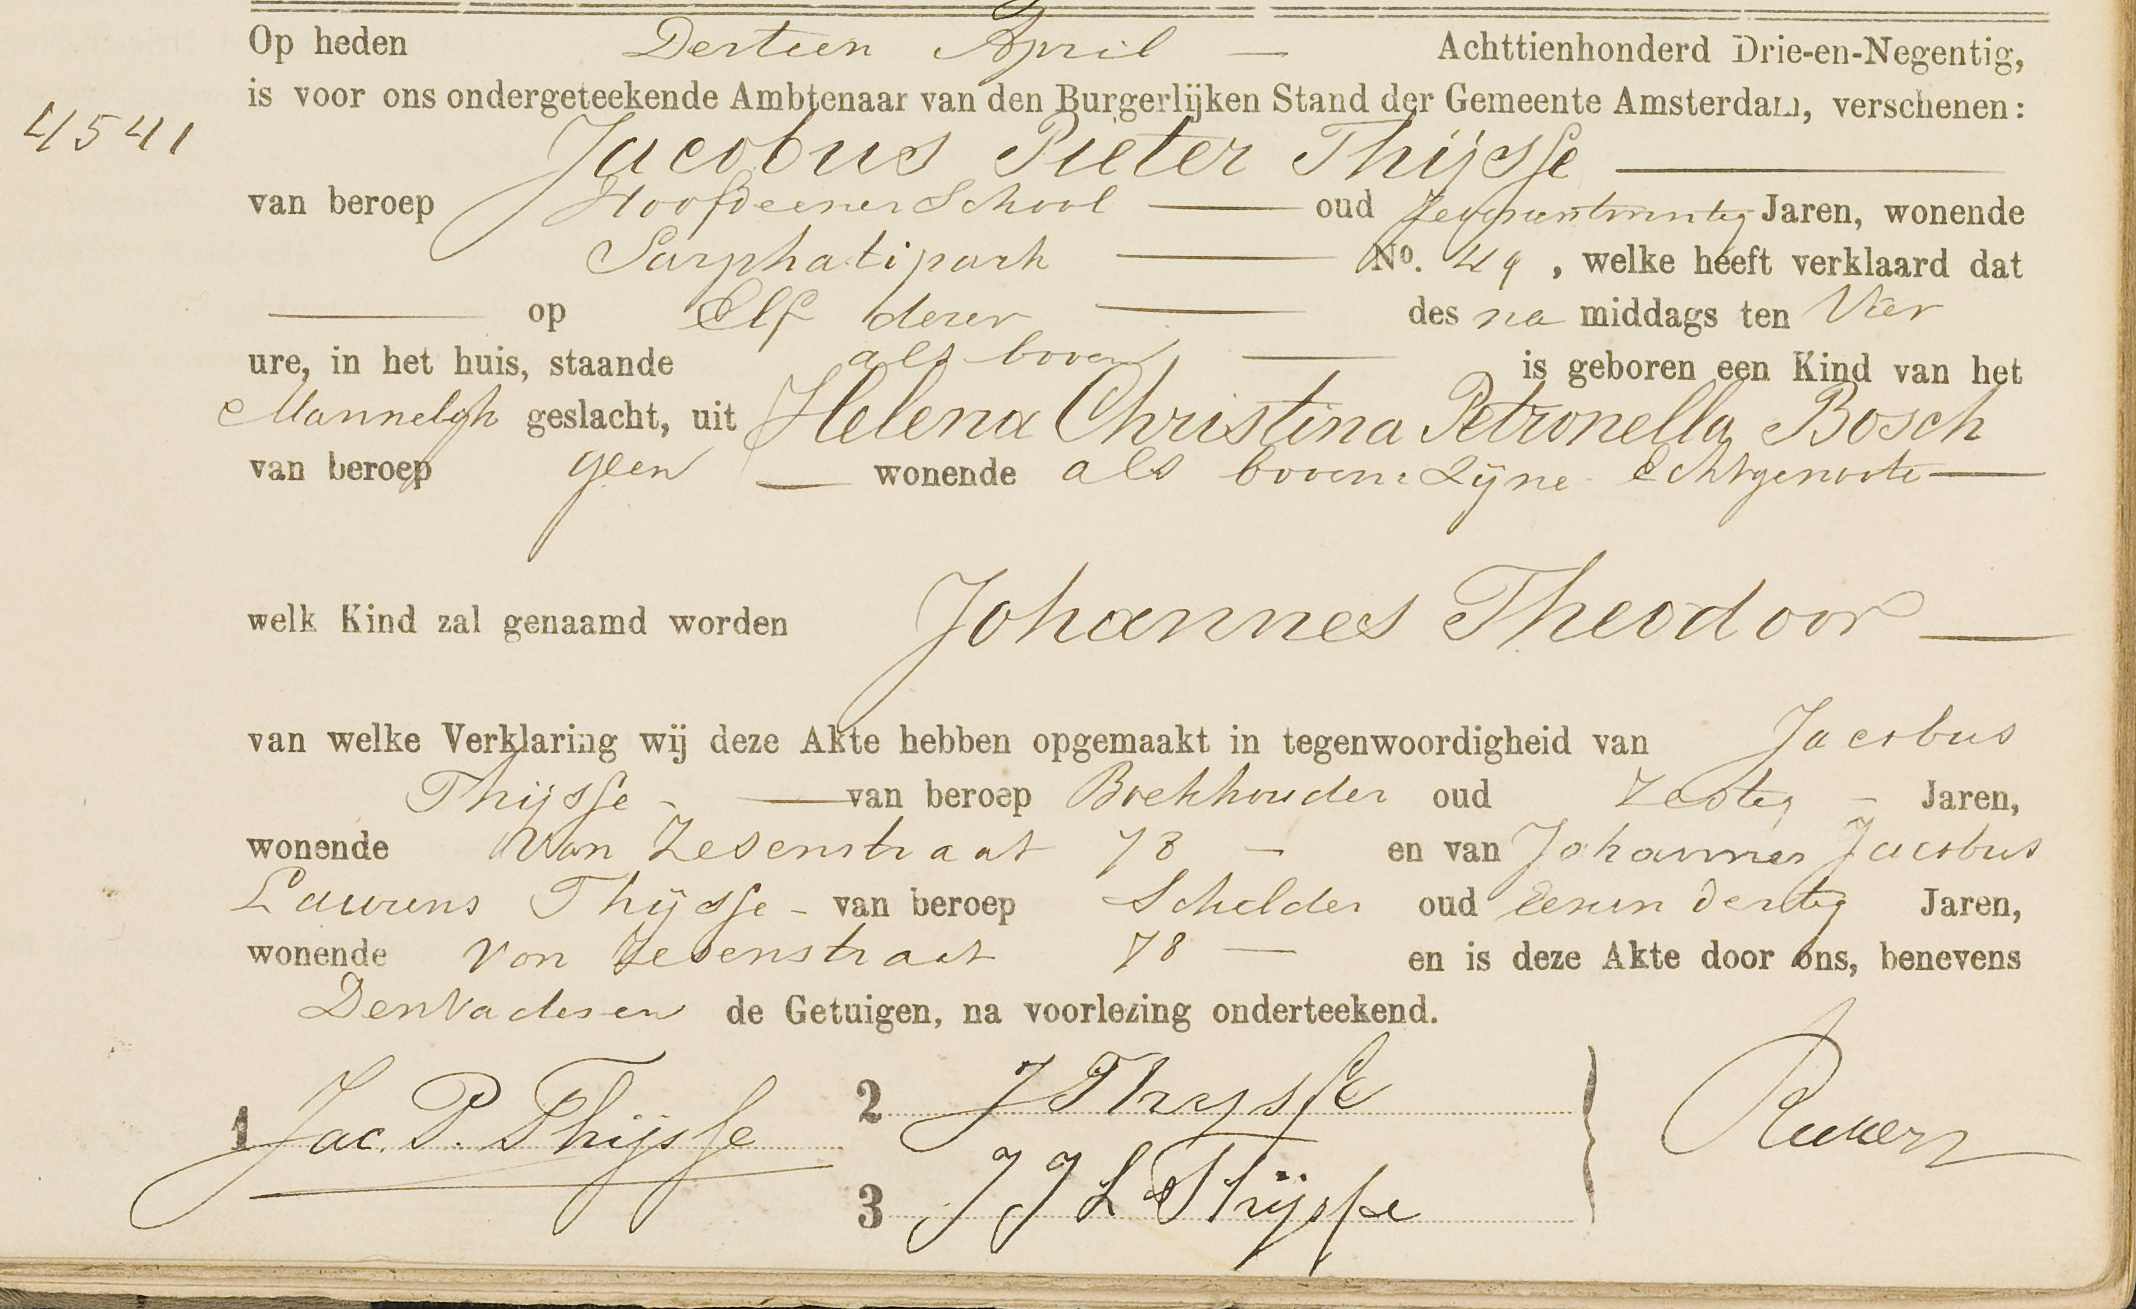 Op heden Dertien April — Achttienhonderd Drie-en-Negentig,
is voor ons ondergeteekende Ambtenaar van den Burgerlijken Stand der Gemeente Amsterdam, verschenen:
4541
Jacobus Pieter Thijsse —
van beroep Hoofdeener School — oud Zevenentwintig Jaren, wonende
Sarphatipark — No. 49, welke heeft verklaard dat
— op Elf dezer — des na middags ten Vier
ure, in het huis, staande als boven — is geboren een Kind van het
Mannelijk geslacht, uit Helena Christina Petronella Bosch
van beroep geen — wonende als boven: Zijne Echtgenoote —
welk Kind zal genaamd worden Johannes Theodoor —
van welke Verklaring wij deze Akte hebben opgemaakt in tegenwoordigheid van Jacobus
Thijsse — van beroep Boekhouder oud Zestig — Jaren,
wonende Von Zesenstraat 78 — en van Johannes Jacobus
Laurens Thijsse — van beroep Schilder oud Eenen dertig Jaren,
wonende Von Zesenstraat 78 — en is deze Akte door ons, benevens
Den Vader en de Getuigen, na voorlezing onderteekend.
1 Jac. P. Thijsse
2 J Thysse
3 J J L Thijsse